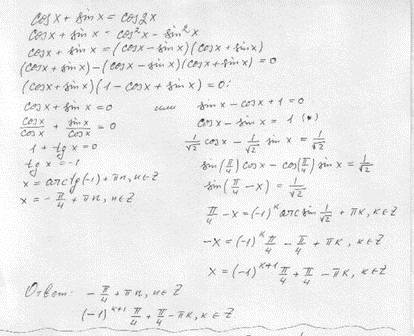 cos x + sin x = cos 2x
cos x + sin x = cos²x - sin²x
cos x + sin x = (cos x - sin x)(cos x + sin x)
(cos x + sin x) - (cos x - sin x)(cos x + sin x) = 0
(cos x + sin x)(1 - cos x + sin x) = 0;
cos x + sin x = 0 или sin x - cos x + 1 = 0
cos x / cos x + sin x / cos x = 0
1 + tg x = 0
tg x = -1
x = arctg(-1) + πn, n∈Z
x = -π/4 + πn, n∈Z
cos x - sin x = 1 (*)
1/√2 cos x - 1/√2 sin x = 1/√2
sin(π/4) cos x - cos(π/4) sin x = 1/√2
sin(π/4 - x) = 1/√2
π/4 - x = (-1)^k arcsin 1/√2 + πk, k∈Z
-x = (-1)^k π/4 - π/4 + πk, k∈Z
x = (-1)^(k+1) π/4 + π/4 - πk, k∈Z
Ответ: -π/4 + πn, n∈Z
(-1)^(k+1) π/4 + π/4 - πk, k∈Z